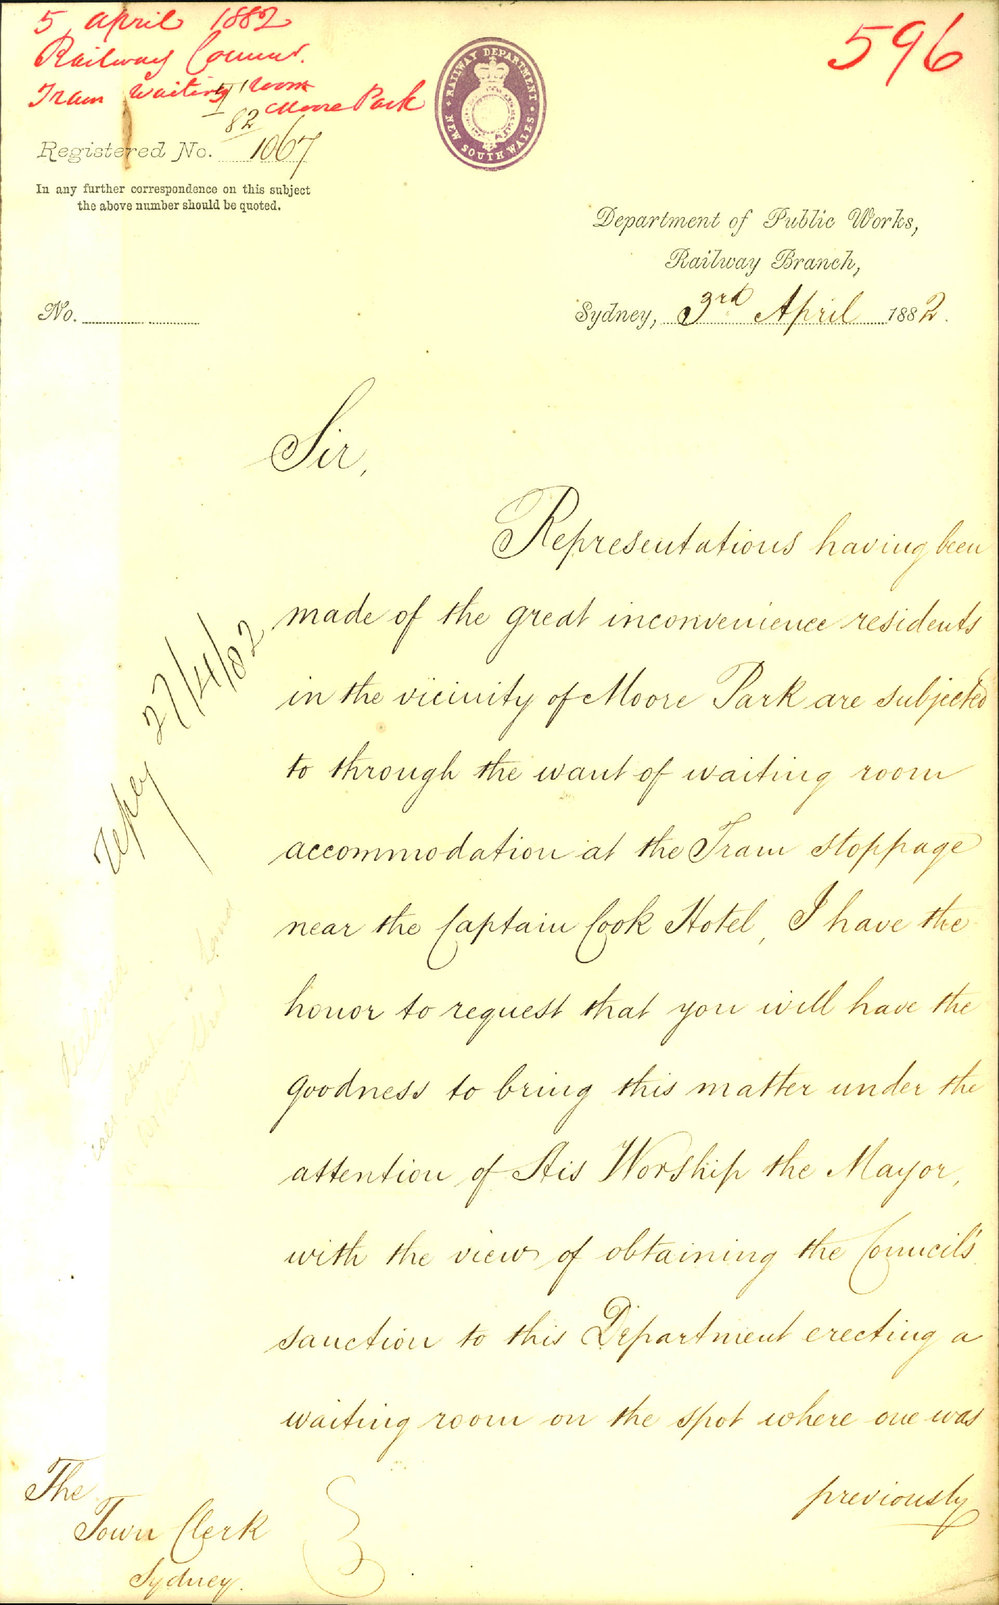 5 April 1882
Railway Commr.
Tram Waiting Room
Moore Park
596
RAILWAY DEPARTMENT
NEW SOUTH WALES
82
Registered No. 1067
In any further correspondence on this subject
the above number should be quoted.
Department of Public Works,
Railway Branch,
No.
Sydney, 3rd April 1882.
Sir,
Representations having been
made of the great inconvenience residents
in the vicinity of Moore Park are subjected
to through the want of waiting room
accommodation at the Tram stoppage
near the Captain Cook Hotel, I have the
honor to request that you will have the
goodness to bring this matter under the
attention of His Worship the Mayor,
with the view of obtaining the Council's
sanction to this Department erecting a
waiting room on the spot where one was
previously
27/4/82
The
Town Clerk
Sydney.